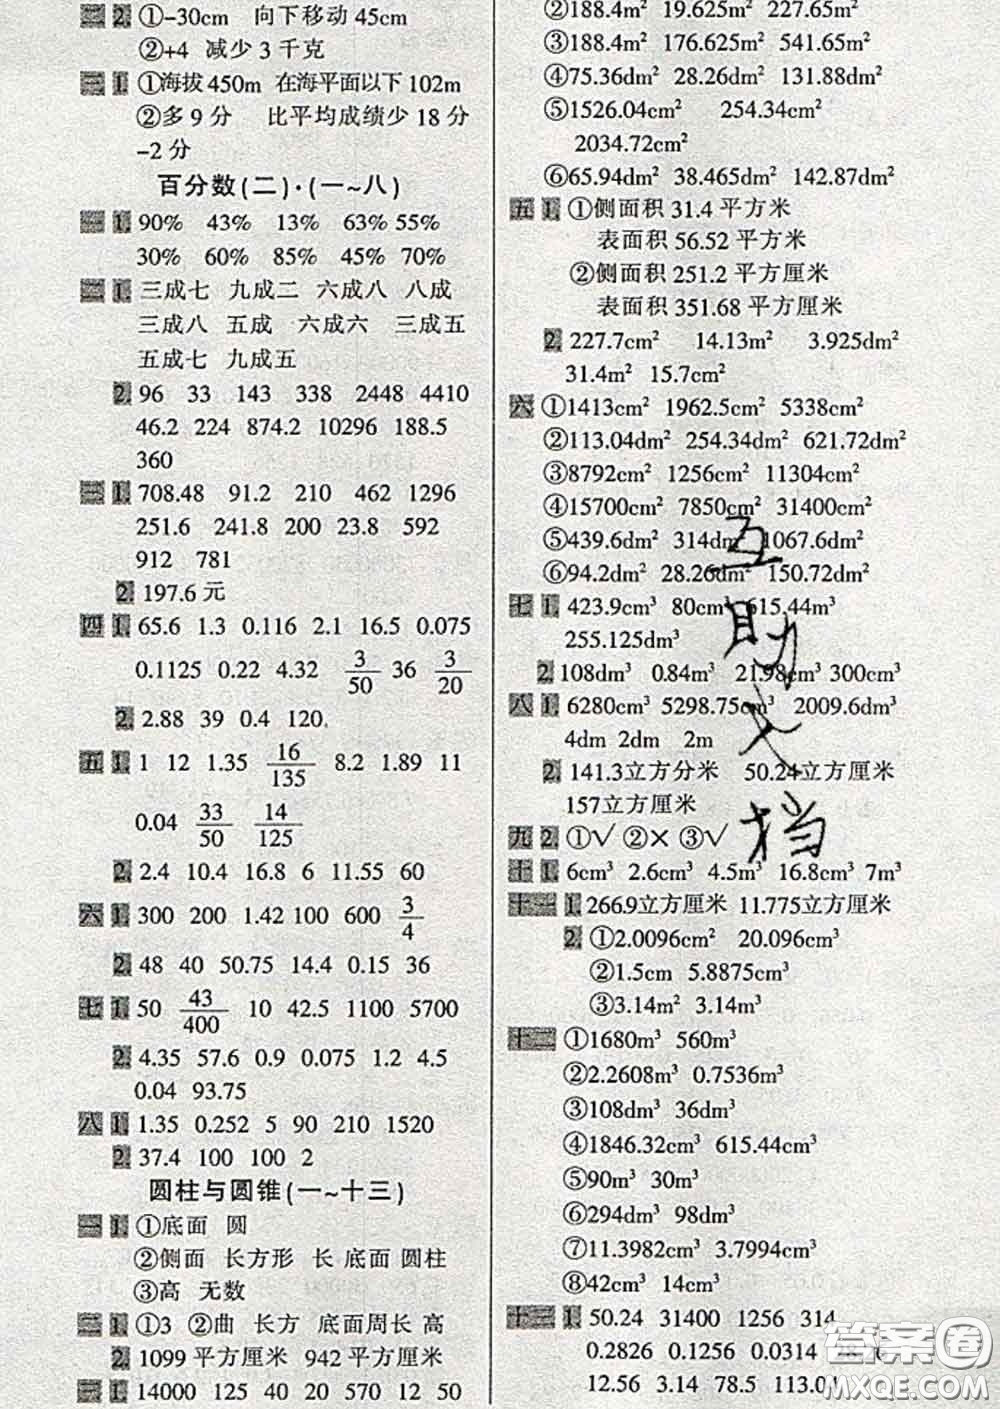 二 2. ①-30cm 向下移动 45cm
②+4 减少 3 千克
三 1. ①海拔 450m 在海平面以下 102m
②多 9 分 比平均成绩少 18 分
-2 分
百分数(二)·(一~八)
一 1. 90% 43% 13% 63% 55%
30% 60% 85% 45% 70%
二 1. 三成七 九成二 六成八 八成
三成八 五成 六成六 三成五
五成七 九成五
2. 96 33 143 338 2448 4410
46.2 224 874.2 10296 188.5
360
三 1. 708.48 91.2 210 462 1296
251.6 241.8 200 23.8 592
912 781
2. 197.6 元
四 1. 65.6 1.3 0.116 2.1 16.5 0.075
0.1125 0.22 4.32 3/50 36 3/20
2. 2.88 39 0.4 120.
五 1. 1 12 1.35 16/135 8.2 1.89 11
0.04 33/50 14/125
2. 2.4 10.4 16.8 6 11.55 60
六 1. 300 200 1.42 100 600 3/4
2. 48 40 50.75 14.4 0.15 36
七 1. 50 43/400 10 42.5 1100 5700
2. 4.35 57.6 0.9 0.075 1.2 4.5
0.04 93.75
八 1. 1.35 0.252 5 90 210 1520
2. 37.4 100 100 2
圆柱与圆锥(一~十三)
一 1. ①底面 圆
②侧面 长方形 长 底面 圆柱
③高 无数
二 1. ①3 ②曲 长方 底面周长 高
2. 1099 平方厘米 942 平方厘米
三 1. 14000 125 40 20 570 12 50
②188.4m² 19.625m² 227.65m²
③188.4m² 176.625m² 541.65m²
④75.36dm² 28.26dm² 131.88dm²
⑤1526.04cm² 254.34cm²
2034.72cm²
⑥65.94dm² 38.465dm² 142.87dm²
五 1. ①侧面积 31.4 平方米
表面积 56.52 平方米
②侧面积 251.2 平方厘米
表面积 351.68 平方厘米
2. 227.7cm² 14.13m² 3.925dm²
31.4m² 15.7cm²
六 ①1413cm² 1962.5cm² 5338cm²
②113.04dm² 254.34dm² 621.72dm²
③8792cm² 1256cm² 11304cm²
④15700cm² 7850cm² 31400cm²
⑤439.6dm² 314dm² 1067.6dm²
⑥94.2dm² 28.26dm² 150.72dm²
七 1. 423.9cm³ 80cm³ 615.44m³
255.125dm³
2. 108dm³ 0.84m³ 21.98cm³ 300cm³
八 1. 6280cm³ 5298.75cm³ 2009.6dm³
4dm 2dm 2m
2. 141.3立方分米 50.24立方厘米
157立方厘米
九 2. ①√ ②× ③√
十 1. 6cm³ 2.6cm³ 4.5m³ 16.8cm³ 7m³
十一 1. 266.9立方厘米 11.775立方厘米
2. ①2.0096cm² 20.096cm³
②1.5cm 5.8875cm³
③3.14m² 3.14m³
十二 ①1680m³ 560m³
②2.2608m³ 0.7536m³
③108dm³ 36dm³
④1846.32cm³ 615.44cm³
⑤90m³ 30m³
⑥294dm³ 98dm³
⑦11.3982cm³ 3.7994cm³
⑧42cm³ 14cm³
十三 1. 50.24 31400 1256 314
0.2826 0.1256 0.0314
12.56 3.14 78.5 113.04
互助文档
答案圈
MXQE.COM